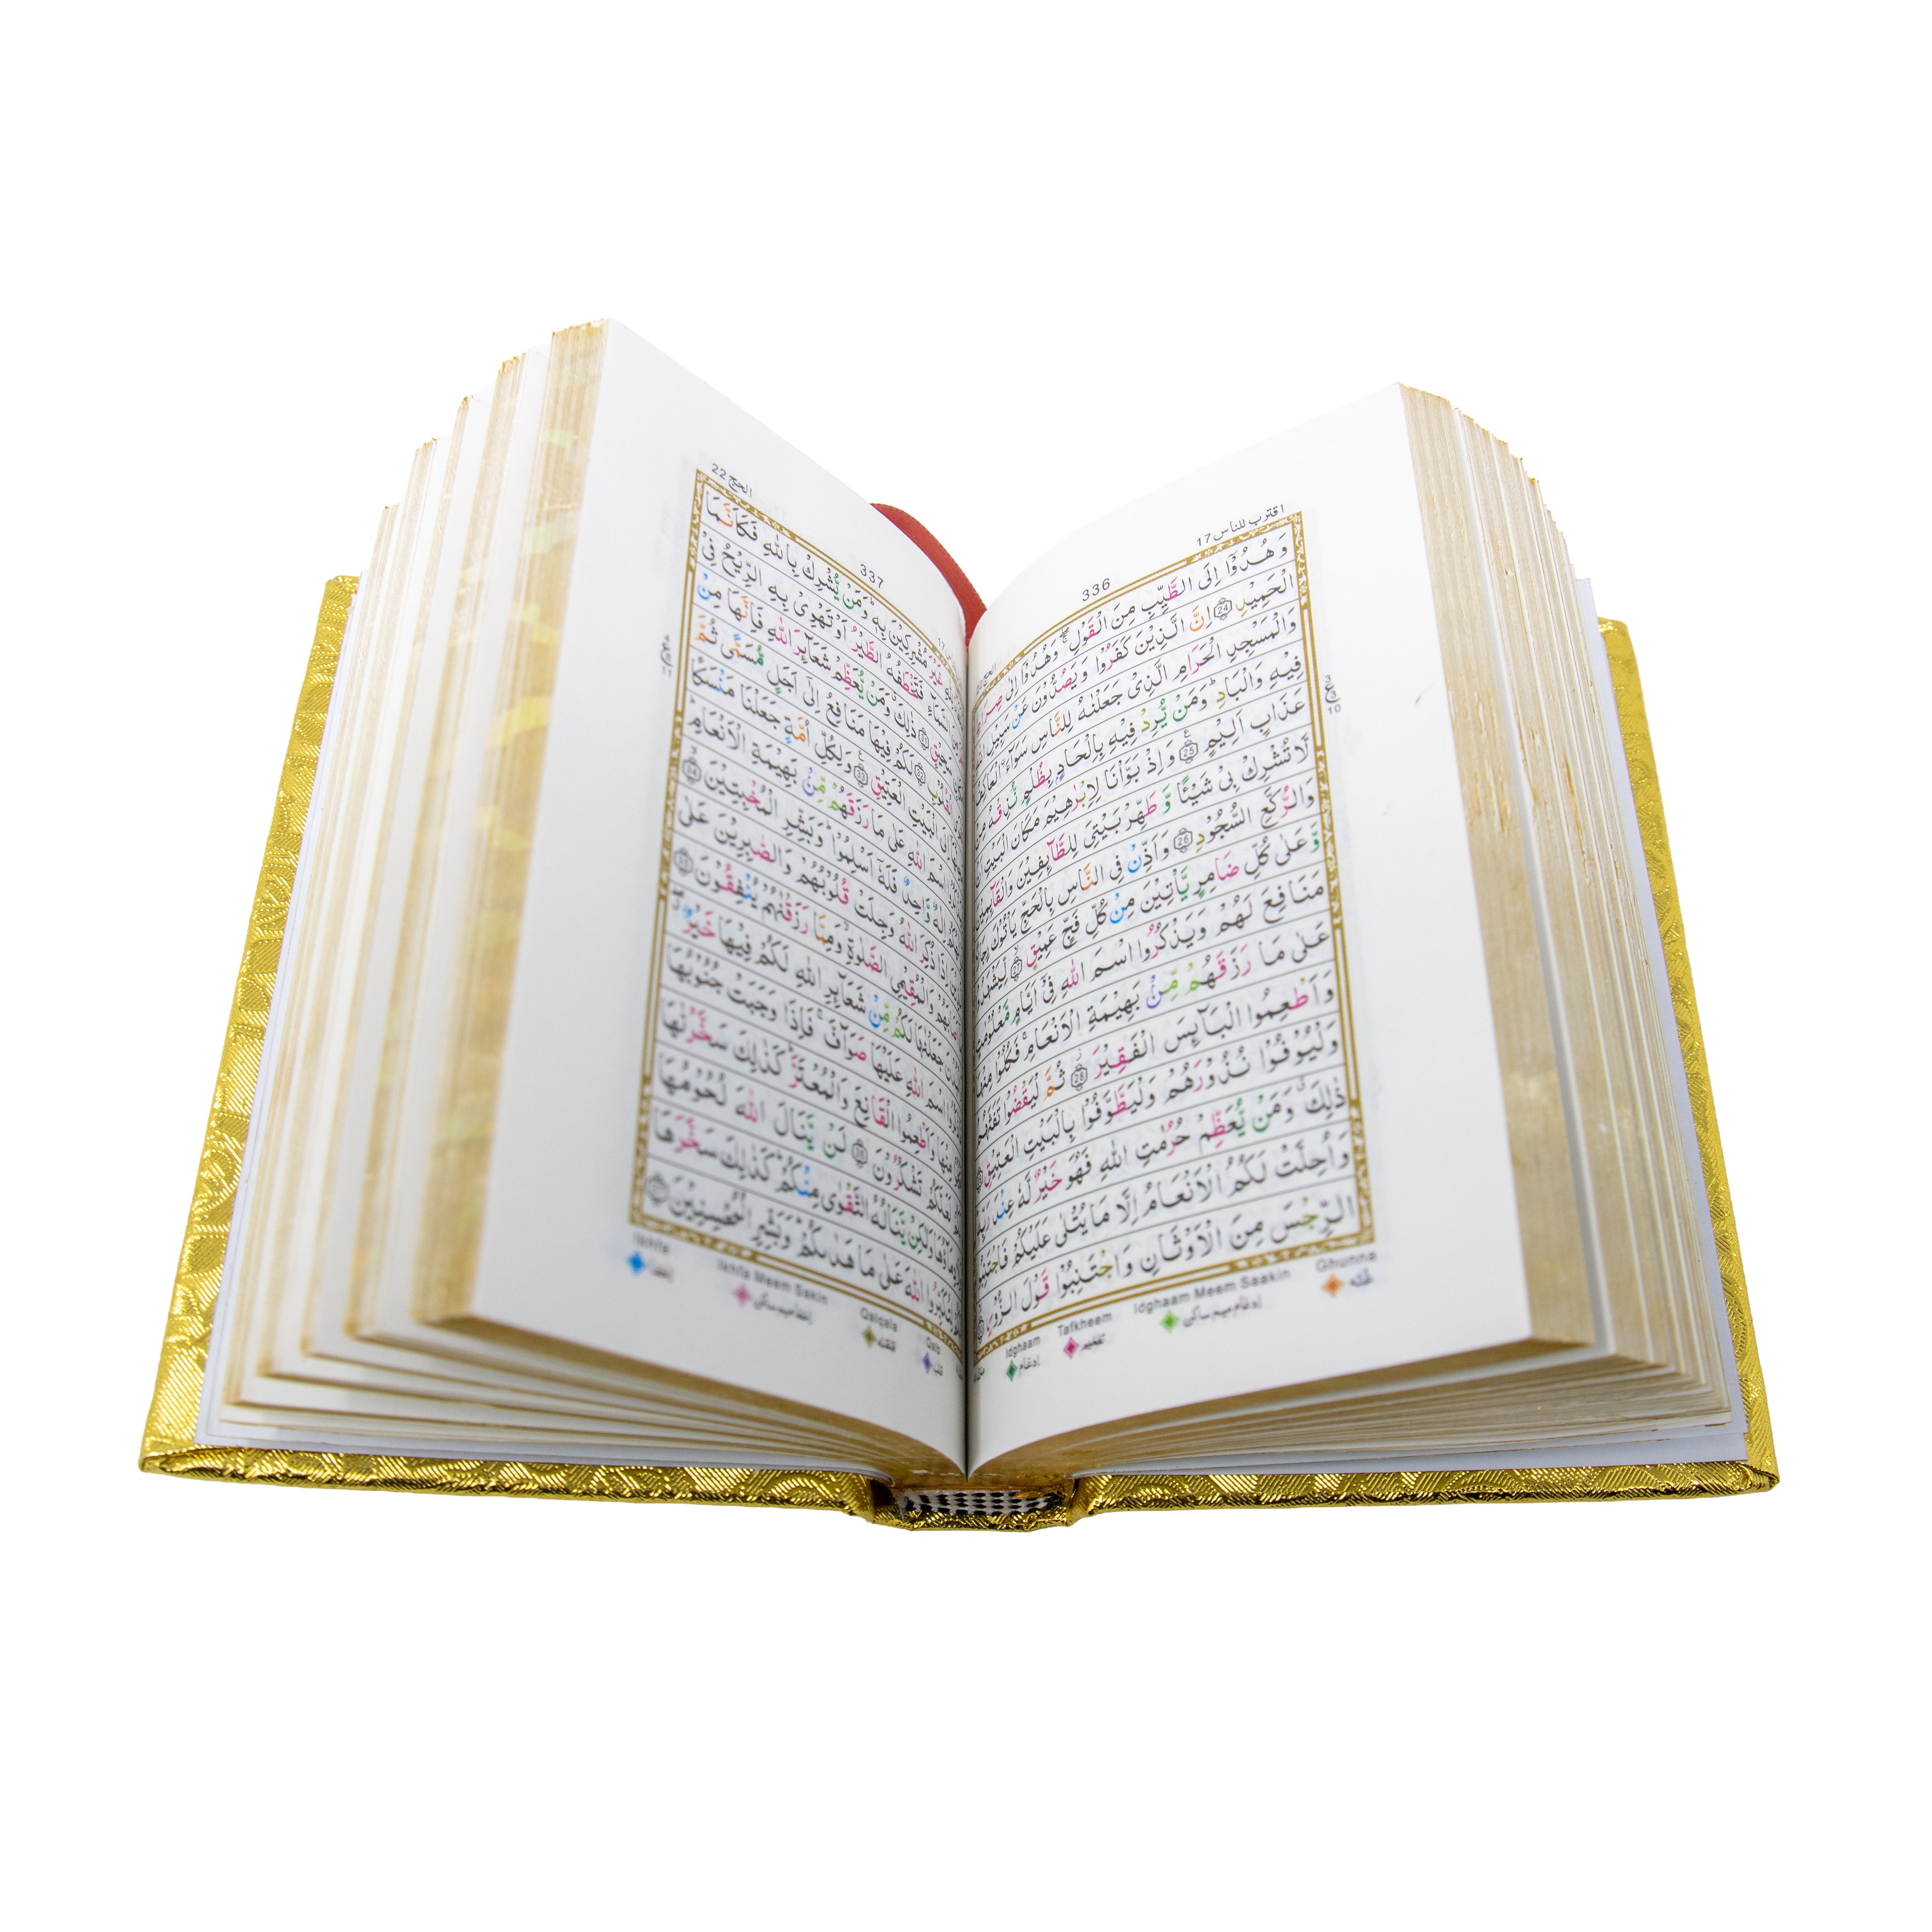 اقترب للناس 17
336
وَهُدُوْٓا اِلَى الطَّيِّبِ مِنَ الْقَوْلِ ۖۚ وَهُدُوْٓا اِلٰى
الْحَمِيْدِ 24 اِنَّ الَّذِيْنَ كَفَرُوْا وَيَصُدُّوْنَ عَنْ سَبِيْلِ
وَالْمَسْجِدِ الْحَرَامِ الَّذِيْ جَعَلْنٰهُ لِلنَّاسِ سَوَآءَ ۨالْعَاكِفُ
فِيْهِ وَالْبَادِ ؕ وَمَنْ يُّرِدْ فِيْهِ بِاِلْحَادٍۭ بِظُلْمٍ نُّذِقْهُ مِنْ
عَذَابٍ اَلِيْمٍ 25 وَاِذْ بَوَّاْنَا لِاِبْرٰهِيْمَ مَكَانَ الْبَيْتِ
لَّا تُشْرِكْ بِيْ شَيْئًا وَّطَهِّرْ بَيْتِيَ لِلطَّآئِفِيْنَ وَالْقَآئِمِيْنَ
وَالرُّكَّعِ السُّجُوْدِ 26 وَاَذِّنْ فِي النَّاسِ بِالْحَجِّ يَاْتُوْكَ
وَّعَلٰى كُلِّ ضَامِرٍ يَّاْتِيْنَ مِنْ كُلِّ فَجٍّ عَمِيْقٍ 27 لِّيَشْهَدُوْا
مَنَافِعَ لَهُمْ وَيَذْكُرُوا اسْمَ اللّٰهِ فِيْٓ اَيَّامٍ مَّعْلُوْمٰتٍ
عَلٰى مَا رَزَقَهُمْ مِّنْۢ بَهِيْمَةِ الْاَنْعَامِ ۚ فَكُلُوْا مِنْهَا
وَاَطْعِمُوا الْبَآئِسَ الْفَقِيْرَ 28 ثُمَّ لْيَقْضُوْا تَفَثَهُمْ
وَلْيُوْفُوْا نُذُوْرَهُمْ وَلْيَطَّوَّفُوْا بِالْبَيْتِ الْعَتِيْقِ
ذٰلِكَ ۗ وَمَنْ يُّعَظِّمْ حُرُمٰتِ اللّٰهِ فَهُوَ خَيْرٌ لَّهٗ عِنْدَ
وَاُحِلَّتْ لَكُمُ الْاَنْعَامُ اِلَّا مَا يُتْلٰى عَلَيْكُمْ فَاجْتَنِبُوا
الرِّجْسَ مِنَ الْاَوْثَانِ وَاجْتَنِبُوْا قَوْلَ الزُّوْرِ
Ghunna
غُنّه
Idghaam Meem Saakin
إدغام ميم ساكن
Tafkheem
تفخيم
Idghaam
إدغام
الحج 22
337
غَيْرَ مُشْرِكِيْنَ بِهٖ ؕ وَمَنْ يُّشْرِكْ بِاللّٰهِ فَكَاَنَّمَا
السَّمَآءِ فَتَخْطَفُهُ الطَّيْرُ اَوْ تَهْوِيْ بِهِ الرِّيْحُ فِيْ
سَحِيْقٍ 31 ذٰلِكَ ۗ وَمَنْ يُّعَظِّمْ شَعَآئِرَ اللّٰهِ فَاِنَّهَا مِنْ
الْقُلُوْبِ 32 لَكُمْ فِيْهَا مَنَافِعُ اِلٰٓى اَجَلٍ مُّسَمًّى ثُمَّ
اِلَى الْبَيْتِ الْعَتِيْقِ 33 وَلِكُلِّ اُمَّةٍ جَعَلْنَا مَنْسَكًا
اسْمَ اللّٰهِ عَلٰى مَا رَزَقَهُمْ مِّنْۢ بَهِيْمَةِ الْاَنْعَامِ
اِلٰهٌ وَّاحِدٌ فَلَهٗٓ اَسْلِمُوْا ؕ وَبَشِّرِ الْمُخْبِتِيْنَ 34
اِذَا ذُكِرَ اللّٰهُ وَجِلَتْ قُلُوْبُهُمْ وَالصّٰبِرِيْنَ عَلٰى
وَالْمُقِيْمِي الصَّلٰوةِ ۙ وَمِمَّا رَزَقْنٰهُمْ يُنْفِقُوْنَ 35
جَعَلْنٰهَا لَكُمْ مِّنْ شَعَآئِرِ اللّٰهِ لَكُمْ فِيْهَا خَيْرٌ
اسْمَ اللّٰهِ عَلَيْهَا صَوَآفَّ ۚ فَاِذَا وَجَبَتْ جُنُوْبُهَا
مِنْهَا وَاَطْعِمُوا الْقَانِعَ وَالْمُعْتَرَّ ؕ كَذٰلِكَ سَخَّرْنٰهَا
لَعَلَّكُمْ تَشْكُرُوْنَ 36 لَنْ يَّنَالَ اللّٰهَ لُحُوْمُهَا
وَلٰكِنْ يَّنَالُهُ التَّقْوٰى مِنْكُمْ ؕ كَذٰلِكَ سَخَّرَهَا
اللّٰهَ عَلٰى مَا هَدٰىكُمْ ؕ وَبَشِّرِ الْمُحْسِنِيْنَ
Ikhfa
إخفا
Ikhfa Meem Sakin
إخفا ميم ساكن
Qalqala
قلقله
Qalb
قلب